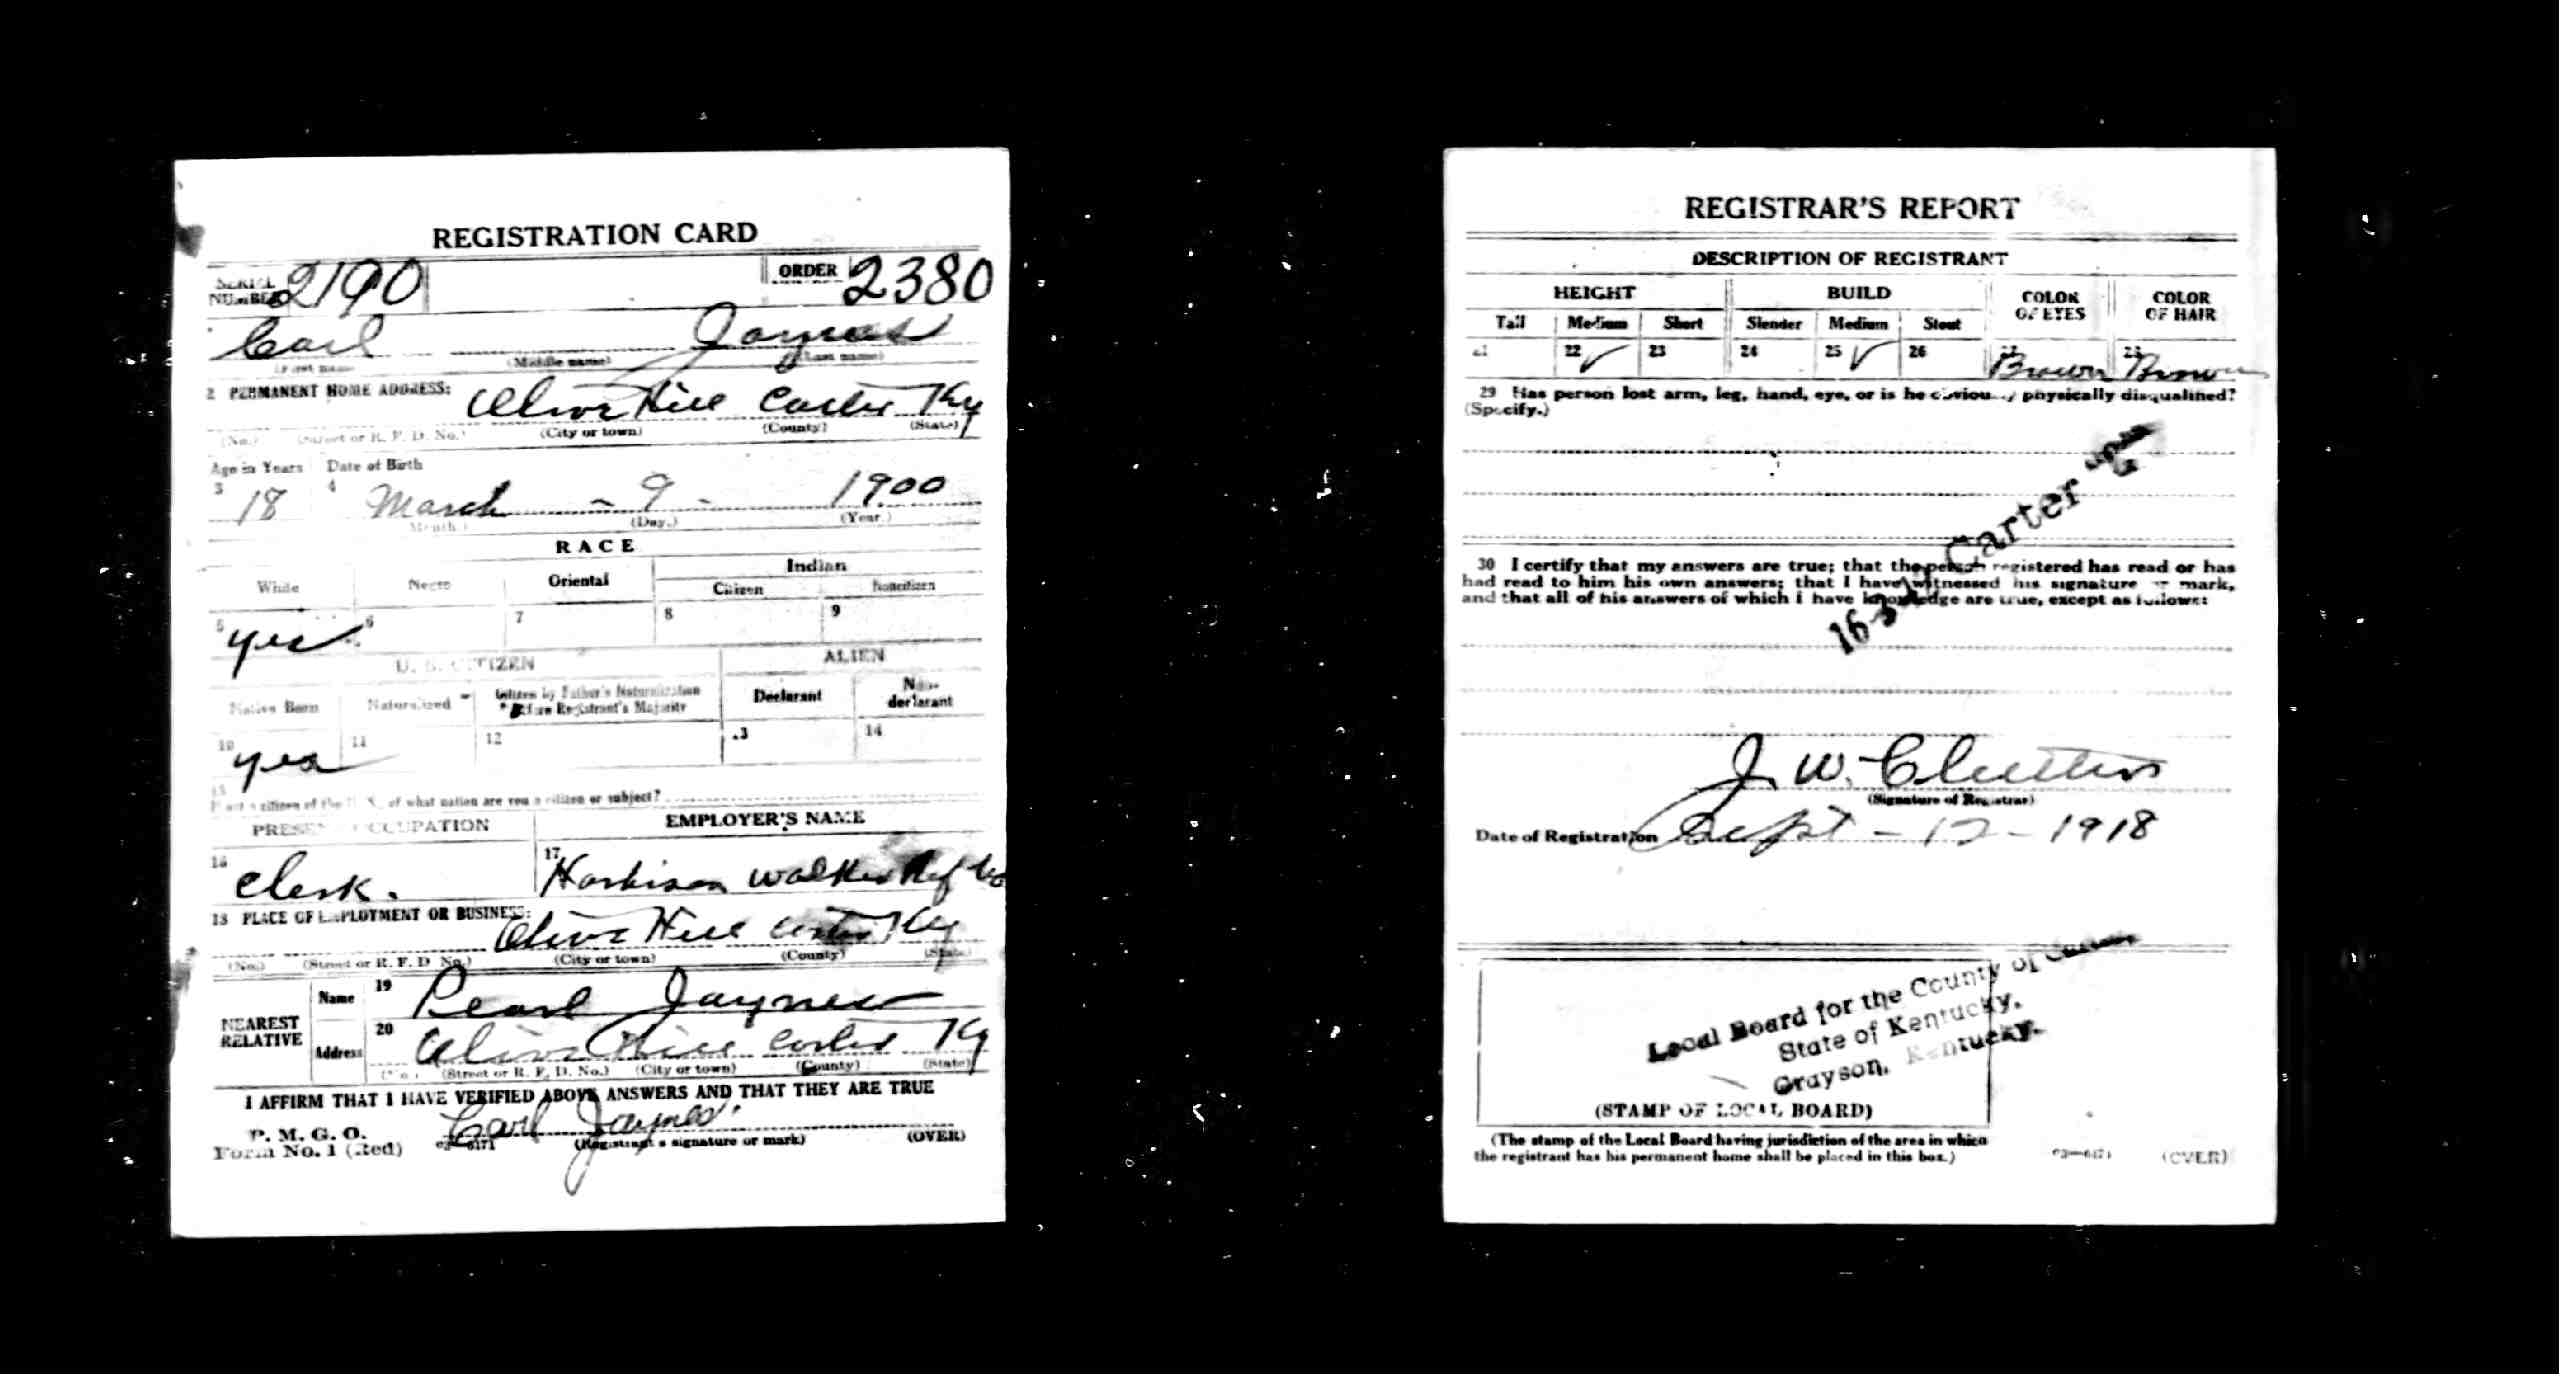 REGISTRATION CARD
SERIAL NUMBER 2190 ORDER 2380
Carl Jaynes
(First name) (Middle name) (Last name)
2 PERMANENT HOME ADDRESS: Olive Hill Carter Ky
(No.) (Street or R. F. D. No.) (City or town) (County) (State)
Age in Years Date of Birth
3 18 4 March - 9 - 1900
(Month.) (Day.) (Year.)
RACE
White Negro Oriental Indian
Citizen Noncitizen
5 yes 6 7 8 9
U. S. CITIZEN ALIEN
Native Born Naturalized Citizen by Father's Naturalization Before Registrant's Majority Declarant Non-declarant
10 yes 11 12 13 14
15 If not a citizen of the U. S., of what nation are you a citizen or subject?
PRESENT OCCUPATION EMPLOYER'S NAME
16 Clerk. 17 Harbison Walker Ref Co
18 PLACE OF EMPLOYMENT OR BUSINESS: Olive Hill Carter Ky
(No.) (Street or R. F. D. No.) (City or town) (County) (State)
NEAREST RELATIVE Name 19 Pearl Jaynes
Address 20 Olive Hill Carter Ky
(No.) (Street or R. F. D. No.) (City or town) (County) (State)
I AFFIRM THAT I HAVE VERIFIED ABOVE ANSWERS AND THAT THEY ARE TRUE
P. M. G. O.
Form No. 1 (Red) Carl Jaynes
(Registrant's signature or mark) (OVER)
REGISTRAR'S REPORT
DESCRIPTION OF REGISTRANT
HEIGHT BUILD COLOR OF EYES COLOR OF HAIR
Tall Medium Short Slender Medium Stout
21 22 ✓ 23 24 25 ✓ 26 Brown Brown
29 Has person lost arm, leg, hand, eye, or is he obviously physically disqualified?
(Specify.)
Carter
30 I certify that my answers are true; that the person registered has read or has
had read to him his own answers; that I have witnessed his signature or mark,
and that all of his answers of which I have knowledge are true, except as follows:
J. W.
(Signature of Registrar)
Date of Registration Sept - 12 - 1918
Local Board for the County of Carter,
State of Kentucky,
Grayson, Kentucky.
(STAMP OF LOCAL BOARD)
(The stamp of the Local Board having jurisdiction of the area in which
the registrant has his permanent home shall be placed in this box.)
03—6171 (OVER)